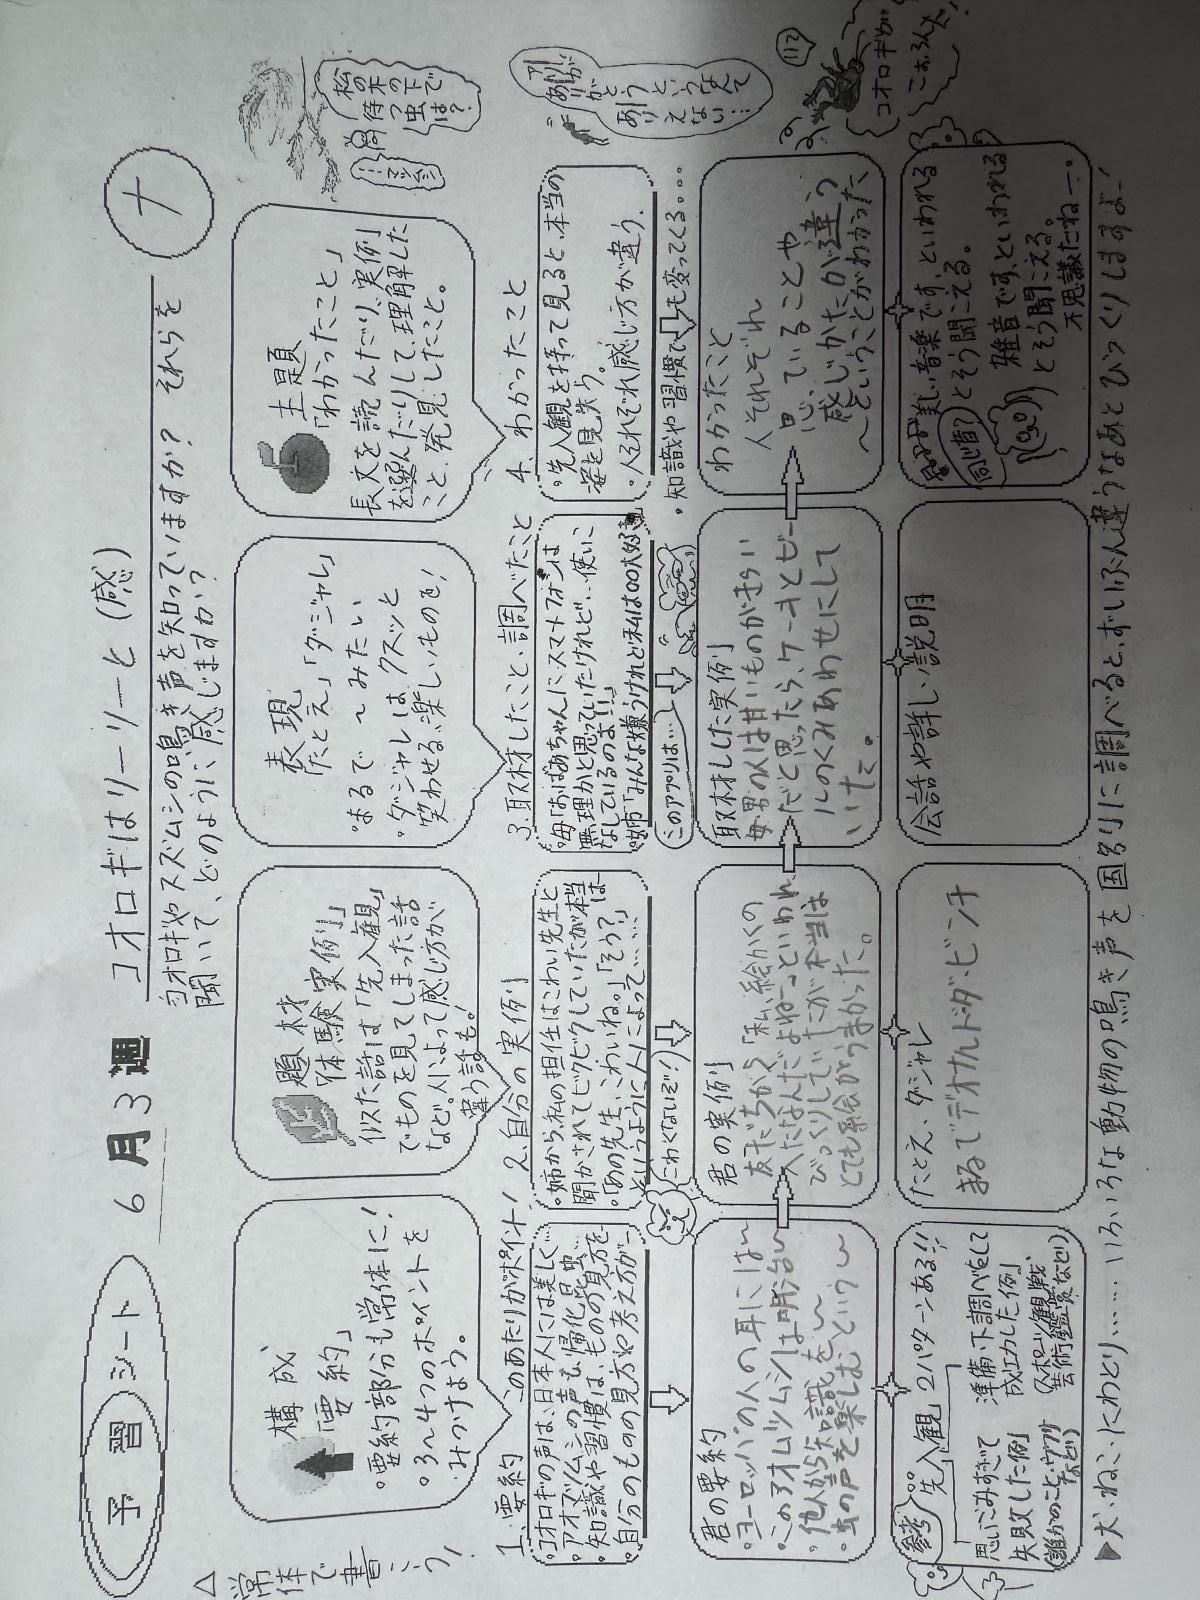 予習シート
6月3週
コオロギはリーリーと(感)
ナ
△常体で書こう!
コオロギやスズムシの鳴き声を知っていますか? それらを
聞いて、どのように感じますか?
構成
「要約」
・要約部分も常体に!
・3〜4つのポイントを
みつけよう。
題材
「体験実例」
似た話は「先入観」
でものを見てしまった話
など。人によって感じ方が
違う話も!
表現
「たとえ」「ダジャレ」
・まるで〜みたい
・ダジャレは、クスッと
笑わせる、楽しいものを!
主題
「わかったこと」
長文を読んだり、実例
を選んだりして、理解した
こと、発見したこと。
松の木の下で
待つ虫は?
…マツムシ
1. 要約 このあたりがポイント!
・コオロギの声は、日本人には美しく…
・アオマツムシの声も、帰化昆虫…
・知識や習慣は、ものの見方を
・自分のものの見方や考え方が…
2. 自分の実例
・姉から、私の担任はこわい先生と
聞かされてビクビクしていたが本当は
・「あの先生、こわいね。」「そう?」
というように人によって……
こわくないぞ!
3. 取材したこと、調べたこと
・母「おばあちゃんにスマートフォンは
無理かと思っていたけれど、使いこ
なしているのよ!!」
・姉「みんな嫌うけれど私は〇〇大好き
このアプリは…
4. わかったこと
・先入観を持って見ると、本当の
姿を見失う。
・人それぞれ感じ方が違う。
・知識や習慣でも変ってくる。。。
君の要約
・ヨーロッパの人の耳には〜
・このアオムツムシは明治〜
・他人から知識を〜
・虫の声を楽しむという〜
君の実例
友だちから「私、絵かくの
へたなんだよねー」といわれ
びっくりしてでたが本当は
とても絵がうまかった。
取材した実例
母 男の人は甘いものがきらい
だと思ったら、ケーキとビー
ルのくみあわせにして
いた。
わかったこと
人それぞれ
思っていることや
感じかたが違う
〜ということがわかった
コオロギが
参考
先入観 2パターンある!!
思いこみすぎて
失敗した例
準備、下調べをして
成功した例
(スポーツ観戦、
芸術鑑賞など)
たとえ、ダジャレ
まるでデオナルドダ・ビンチ
会話や詳しい説明
美しい音楽です、といわれる
とそう聞こえる。
同じ音?
雑音です、といわれる
とそう聞こえる。
不思議だねー。
▶犬、ねこ、にわとり……いろいろな動物の鳴き声を国別に調べると、ずいぶん違うなあとびっくりしますよ!